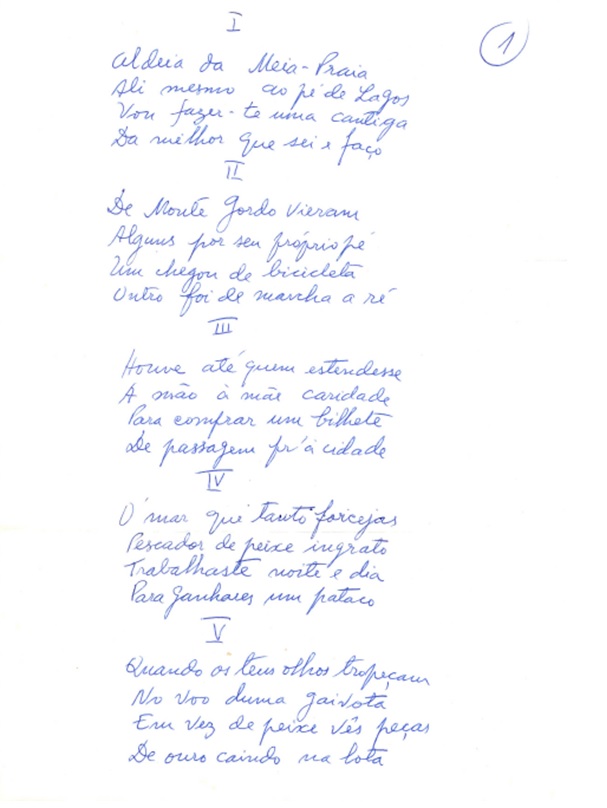 I
1
Aldeia da Meia-Praia
Ali mesmo ao pé de Lagos
Vou fazer-te uma cantiga
Da melhor que sei e faço
II
De Monte Gordo vieram
Alguns por seu próprio pé
Um chegou de bicicleta
Outro foi de marcha a ré
III
Houve até quem estendesse
A mão à mãe caridade
Para comprar um bilhete
De passagem pr'à cidade
IV
Ó mar que tanto forcejas
Pescador de peixe ingrato
Trabalhaste noite e dia
Para ganhares um pataco
V
Quando os teus olhos tropeçam
No voo duma gaivota
Em vez de peixe vês peças
De ouro caindo na lota